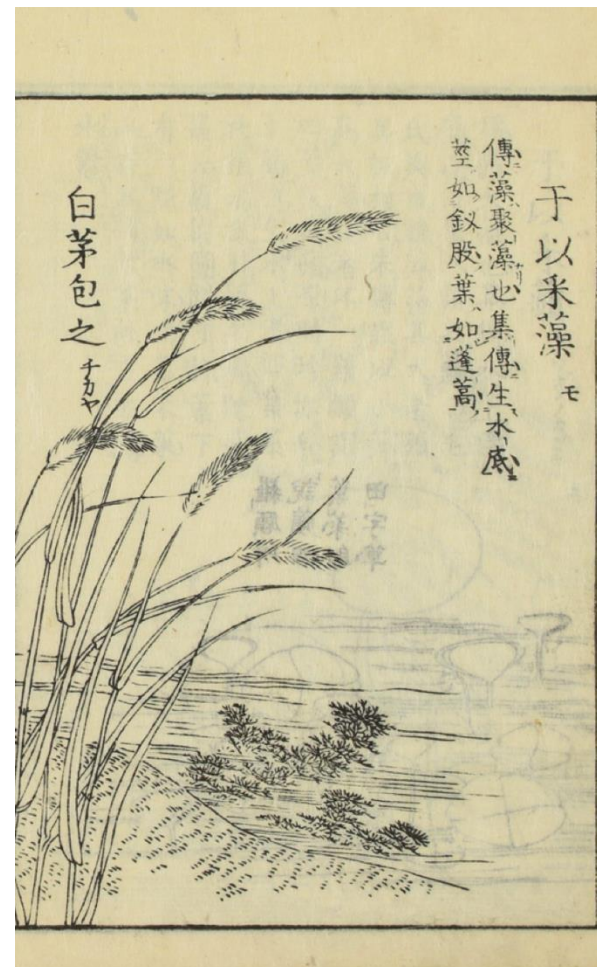 于以采藻 モ
傳藻聚藻也集傳生水底
莖如釵股葉如蓬蒿
白茅包之 チカヤ